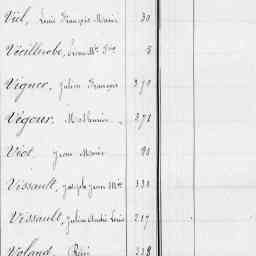 Viel, Louis François Marie 30
Vieillerobe, Jean Mie 5
Vigner, Julien François 370
Vigour, Mathurin 378
Viot, Jean Marie 90
Vissault, Joseph Jean Mie 338
Vissault, Julien André Louis 217
Voland, René 328